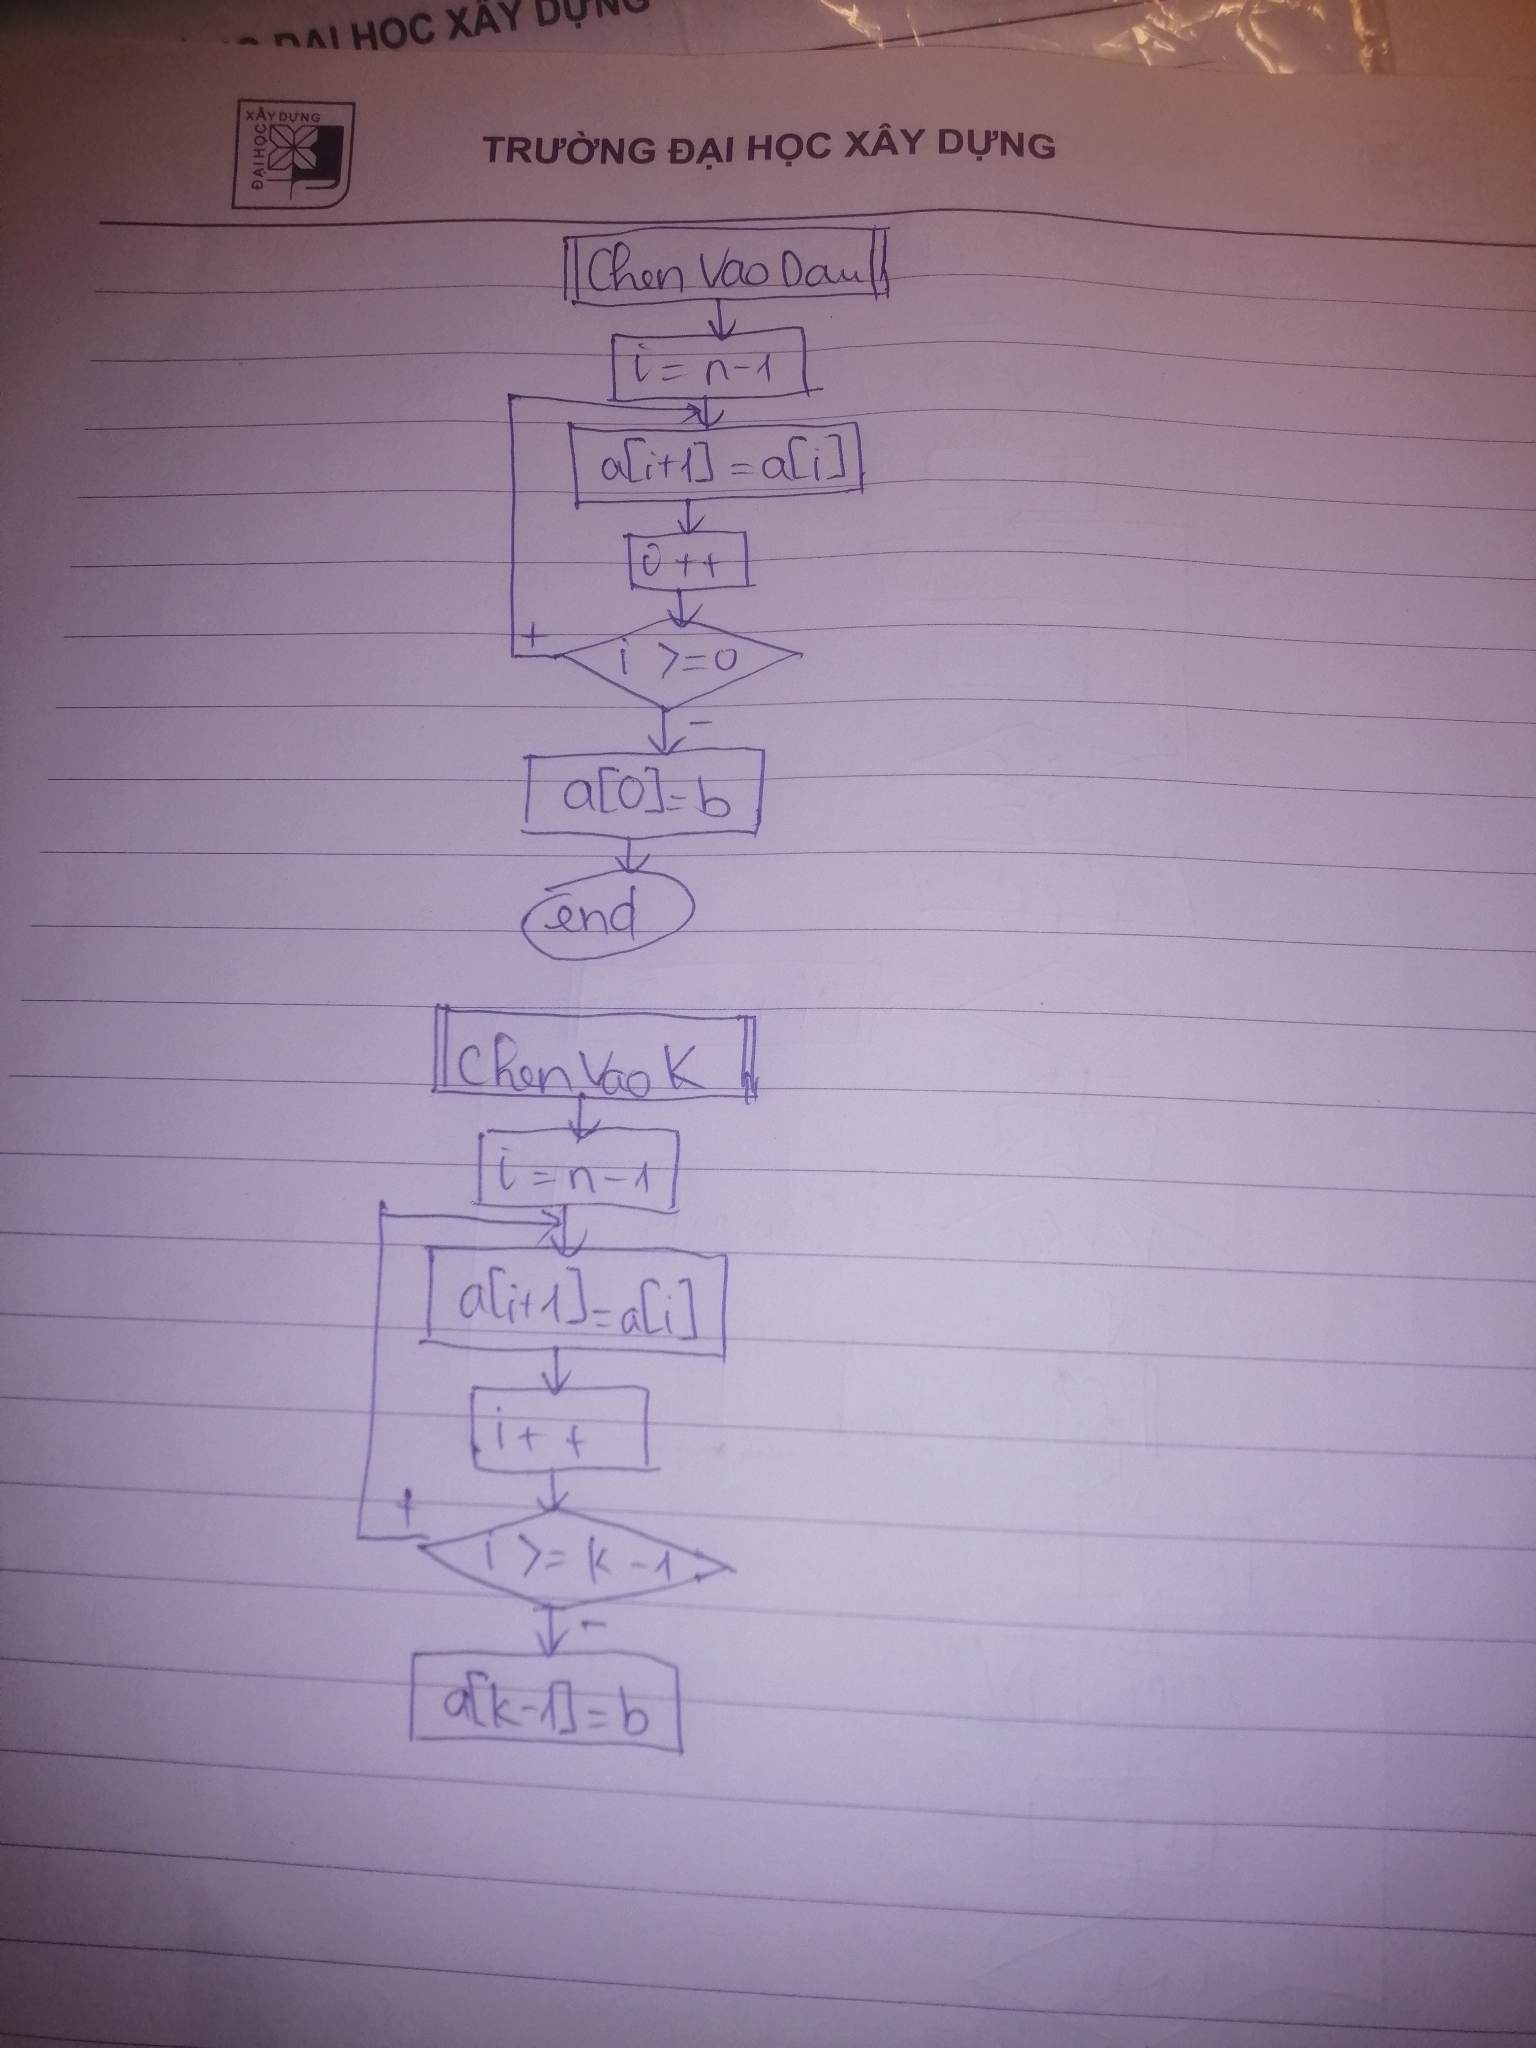 ĐẠI HỌC XÂY DỰNG
XÂY DỰNG
ĐẠI HỌC
TRƯỜNG ĐẠI HỌC XÂY DỰNG
Chen Vao Dau
i = n-1
a[i+1] = a[i]
0 ++
+
i >=0
-
a[0]=b
end
Chen Vao K
i = n-1
a[i+1]=a[i]
i++
+
i >= k-1
-
a[k-1]=b